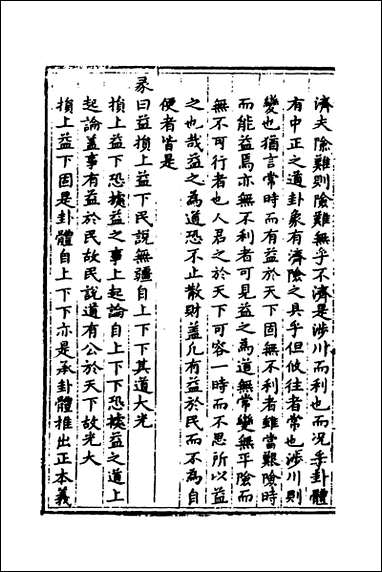 濟夫險難則險難無乎不濟是涉川而利也而况乎卦體
有中正之道卦象有濟險之具乎但攸往者常也涉川則
變也猶言常時而有益於天下固無不利者雖當艱險時
而能益焉亦無不利者可見益之為道無常變無平險而
無不可行者也人君之於天下可容一時而不思所以益
之也哉益之為道恐不止散財盖凡有益於民而不為自
便者皆是
彖曰益損上益下民說無疆自上下下其道大光
損上益下恐據益之事上起論自上下下恐據益之道上
起論盖事有益於民故民說道有公於天下故光大
損上益下固是卦體自上下下亦是承卦體推出正本義